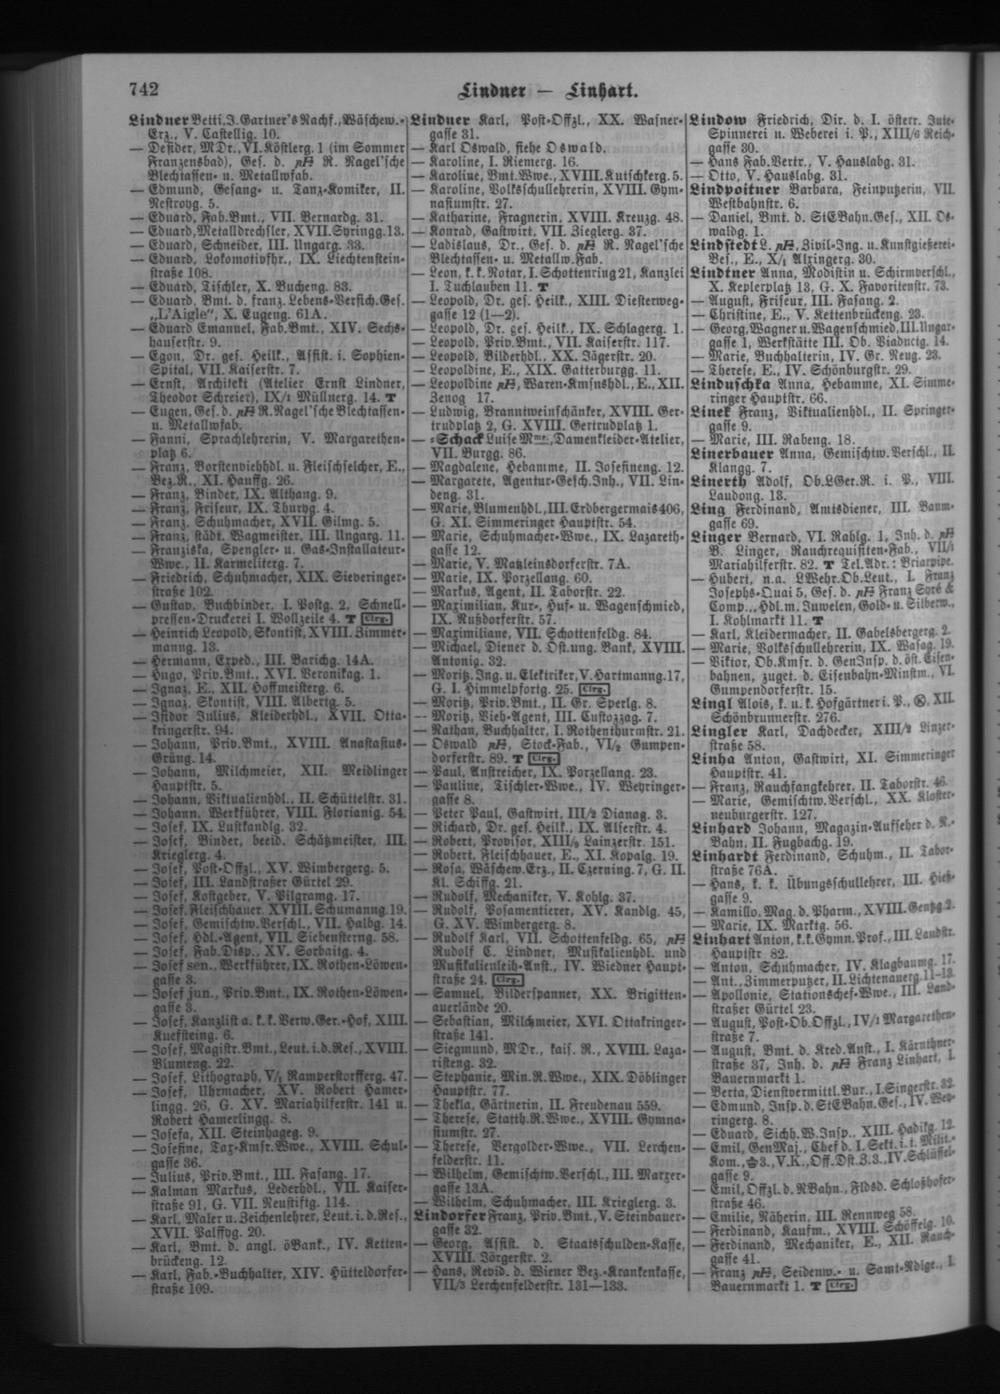 742
Lindner — Linhart.
Lindner Betti, J. Gartner's Nachf., Wäschew.-
Erz., V. Castellig. 10.
— Desider, MDr., VI. Köstlerg. 1 (im Sommer
Franzensbad), Ges. d. R. Nagel'sche
Blechtassen- u. Metallwfab.
— Edmund, Gesang- u. Tanz-Komiker, II.
Nestroyg. 5.
— Eduard, Fab.Bmt., VII. Bernardg. 31.
— Eduard, Metalldrechsler, XVII. Syringg. 13.
— Eduard, Schneider, III. Ungarg. 33.
— Eduard, Lokomotivfhr., IX. Liechtenstein-
straße 108.
— Eduard, Tischler, X. Bucheng. 83.
— Eduard, Bmt. d. franz. Lebens-Versich.Ges.
„L'Aigle“, X. Eugeng. 61A.
— Eduard Emanuel, Fab.Bmt., XIV. Sechs-
hauserstr. 9.
— Egon, Dr. ges. Heilk., Assist. i. Sophien-
Spital, VII. Kaiserstr. 7.
— Ernst, Architekt (Atelier Ernst Lindner,
Theodor Schreier), IX/1 Müllnerg. 14. T
— Eugen, Ges. d. R. Nagel'sche Blechtassen-
u. Metallwfab.
— Fanni, Sprachlehrerin, V. Margarethen-
platz 6.
— Franz, Borstenviehhdl. u. Fleischselcher, E.,
Bez.R., XI. Hauffg. 26.
— Franz, Binder, IX. Althang. 9.
— Franz, Friseur, IX. Thuryg. 4.
— Franz, Schuhmacher, XVII. Gilmg. 5.
— Franz, städt. Wagmeister, III. Ungarg. 11.
— Franziska, Spengler- u. Gas-Installateur-
Wwe., II. Karmeliterg. 7.
— Friedrich, Schuhmacher, XIX. Sieveringer-
straße 102.
— Gustav, Buchbinder, I. Postg. 2, Schnell-
pressen-Druckerei I. Wollzeile 4. T Clrg.
— Heinrich Leopold, Skontist, XVIII. Zimmer-
manng. 13.
— Hermann, Exped., III. Barichg. 14A.
— Hugo, Priv.Bmt., XVI. Veronikag. 1.
— Ignaz, E., XII. Hoffmeisterg. 6.
— Ignaz, Skontist, VIII. Albertg. 5.
— Isidor Julius, Kleiderhdl., XVII. Otta-
kringerstr. 94.
— Johann, Priv.Bmt., XVIII. Anastasius-
Grüng. 14.
— Johann, Milchmeier, XII. Meidlinger
Hauptstr. 5.
— Johann, Viktualienhdl., II. Schüttelstr. 31.
— Johann, Werkführer, VIII. Florianig. 54.
— Josef, IX. Lustkandlg. 32.
— Josef, Binder, beeid. Schätzmeister, III.
Krieglerg. 4.
— Josef, Post-Offzl., XV. Wimbergerg. 5.
— Josef, III. Landstraßer Gürtel 29.
— Josef, Kostgeber, V. Pilgramg. 17.
— Josef, Fleischhauer, XVIII. Schumanng. 19.
— Josef, Gemischtw.Verschl., VII. Halbg. 14.
— Josef, Hdl.-Agent, VII. Siebensterng. 58.
— Josef, Fab.Disp., XV. Sorbaitg. 4.
— Josef sen., Werkführer, IX. Rothen-Löwen-
gasse 3.
— Josef jun., Priv.Bmt., IX. Rothen-Löwen-
gasse 3.
— Josef, Kanzlist a. k. k. Verw.Ger.-Hof, XIII.
Kuefsteing. 6.
— Josef, Magistr.Bmt., Leut. i. d. Res., XVIII.
Blumeng. 22.
— Josef, Lithograph, V/1 Ramperstorfferg. 47.
— Josef, Uhrmacher, XV. Robert Hamer-
lingg. 26, G. XV. Mariahilferstr. 141 u.
Robert Hamerlingg. 8.
— Josefa, XII. Steinhageg. 9.
— Josefine, Tax-Kmsr.Wwe., XVIII. Schul-
gasse 36.
— Julius, Priv.Bmt., III. Fasang. 17.
— Kalman Markus, Lederhdl., VII. Kaiser-
straße 91, G. VII. Neustiftg. 114.
— Karl, Maler u. Zeichenlehrer, Leut. i. d. Res.,
XVII. Palffyg. 20.
— Karl, Bmt. d. angl. öBank., IV. Ketten-
brückeng. 12.
— Karl, Fab.-Buchhalter, XIV. Hütteldorfer-
straße 109.
Lindner Karl, Post-Offzl., XX. Wasner-
gasse 31.
— Karl Oswald, siehe Oswald.
— Karoline, I. Riemerg. 16.
— Karoline, Bmt.Wwe., XVIII. Kutschkerg. 5.
— Karoline, Volksschullehrerin, XVIII. Gym-
nasiumstr. 27.
— Katharine, Fragnerin, XVIII. Kreuzg. 48.
— Konrad, Gastwirt, VII. Zieglerg. 37.
— Ladislaus, Dr., Ges. d. R. Nagel'sche
Blechtassen- u. Metallw.Fab.
— Leon, k. k. Notar, I. Schottenring 21, Kanzlei
I. Tuchlauben 11. T
— Leopold, Dr. ges. Heilk., XIII. Diesterweg-
gasse 12 (1—2).
— Leopold, Dr. ges. Heilk., IX. Schlagerg. 1.
— Leopold, Priv.Bmt., VII. Kaiserstr. 117.
— Leopold, Bilderhdl., XX. Jägerstr. 20.
— Leopoldine, E., XIX. Gatterburgg. 11.
— Leopoldine, Waren-Kmsnshdl., E., XII.
Zenog 17.
— Ludwig, Branntweinschänker, XVIII. Ger-
trudplatz 2, G. XVIII. Gertrudplatz 1.
— -Schack Luise Mme, Damenkleider-Atelier,
VII. Burgg. 86.
— Magdalene, Hebamme, II. Josefineng. 12.
— Margarete, Agentur-Gesch.Inh., VII. Lin-
deng. 31.
— Marie, Blumenhdl., III. Erdbergermais 406,
G. XI. Simmeringer Hauptstr. 54.
— Marie, Schuhmacher-Wwe., IX. Lazareth-
gasse 12.
— Marie, V. Matzleinsdorferstr. 7A.
— Marie, IX. Porzellang. 60.
— Markus, Agent, II. Taborstr. 22.
— Maximilian, Kur-, Huf- u. Wagenschmied,
IX. Nußdorferstr. 57.
— Maximiliane, VII. Schottenfeldg. 84.
— Michael, Diener d. Öst.ung. Bank, XVIII.
Antonig. 32.
— Moritz, Ing. u. Elektriker, V. Hartmanng. 17,
G. I. Himmelpfortg. 25. Clrg.
— Moritz, Priv.Bmt., II. Gr. Sperlg. 8.
— Moritz, Vieh-Agent, III. Custozzag. 7.
— Nathan, Buchhalter, I. Rothenthurmstr. 21.
— Oswald, Stock-Fab., VI/2 Gumpen-
dorferstr. 89. T Clrg.
— Paul, Anstreicher, IX. Porzellang. 23.
— Pauline, Tischler-Wwe., IV. Weyringer-
gasse 8.
— Peter Paul, Gastwirt, III/2 Dianag. 3.
— Richard, Dr. ges. Heilk., IX. Alserstr. 4.
— Robert, Provisor, XIII/9 Lainzerstr. 151.
— Robert, Fleischhauer, E., XI. Kopalg. 19.
— Rosa, Wäschew.Erz., II. Czerning. 7, G. II.
Kl. Schiffg. 21.
— Rudolf, Mechaniker, V. Kohlg. 37.
— Rudolf, Posamentierer, XV. Kandlg. 45,
G. XV. Wimbergerg. 8.
— Rudolf Karl, VII. Schottenfeldg. 65,
Rudolf C. Lindner, Musikalienhdl. und
Musikalienleih-Anst., IV. Wiedner Haupt-
straße 24. Clrg.
— Samuel, Bilderspanner, XX. Brigitten-
auerlände 20.
— Sebastian, Milchmeier, XVI. Ottakringer-
straße 141.
— Siegmund, MDr., kais. R., XVIII. Laza-
risteng. 32.
— Stephanie, Min.R.Wwe., XIX. Döblinger
Hauptstr. 77.
— Thekla, Gärtnerin, II. Freudenau 559.
— Therese, Statth.R.Wwe., XVIII. Gymna-
siumstr. 27.
— Therese, Vergolder-Wwe., VII. Lerchen-
felderstr. 11.
— Wilhelm, Gemischtw.Verschl., III. Marxer-
gasse 13A.
— Wilhelm, Schuhmacher, III. Krieglerg. 3.
Lindorfer Franz, Priv.Bmt., V. Steinbauer-
gasse 32.
— Georg, Assist. d. Staatsschulden-Kasse,
XVIII. Jörgerstr. 2.
— Hans, Revid. d. Wiener Bez.-Krankenkasse,
VII/3 Lerchenfelderstr. 131—133.
Lindow Friedrich, Dir. d. I. österr. Jute-
Spinnerei u. Weberei i. P., XIII/6 Reich-
gasse 30.
— Hans Fab.Vertr., V. Hauslabg. 31.
— Otto, V. Hauslabg. 31.
Lindpoitner Barbara, Feinputzerin, VII.
Westbahnstr. 6.
— Daniel, Bmt. d. StEBahn.Ges., XII. Os-
waldg. 1.
Lindstedt L., Zivil-Ing. u. Kunstgießerei-
Bes., E., X/1 Alxingerg. 30.
Lindtner Anna, Modistin u. Schirmverschl.,
X. Keplerplatz 13, G. X. Favoritenstr. 73.
— August, Friseur, III. Fasang. 2.
— Christine, E., V. Kettenbrückeng. 23.
— Georg, Wagner u. Wagenschmied, III. Ungar-
gasse 1, Werkstätte III. Ob. Viaductg. 14.
— Marie, Buchhalterin, IV. Gr. Neug. 23.
— Therese, E., IV. Schönburgstr. 29.
Linduschka Anna, Hebamme, XI. Simme-
ringer Hauptstr. 66.
Linek Franz, Viktualienhdl., II. Springer-
gasse 9.
— Marie, III. Rabeng. 18.
Linerbauer Anna, Gemischtw.Verschl., II.
Klangg. 7.
Linerth Adolf, Ob.LGer.R. i. P., VIII.
Laudong. 13.
Ling Ferdinand, Amtsdiener, III. Baum-
gasse 69.
Linger Bernard, VI. Rahlg. 1, Inh. d.
B. Linger, Rauchrequisiten-Fab., VII/1
Mariahilferstr. 82. T Tel.Adr.: Briarpipe.
— Hubert, n.a. LWehr.Ob.Leut., I. Franz
Josephs-Quai 5, Ges. d. Franz Soré &
Comp., Hdl. m. Juwelen, Gold- u. Silberw.,
I. Kohlmarkt 11. T
— Karl, Kleidermacher, II. Gabelsbergerg. 2.
— Marie, Volksschullehrerin, IX. Wasag. 19.
— Viktor, Ob.Kmsr. d. GenInsp. d. öst. Eisen-
bahnen, zuget. d. Eisenbahn-Minstm., VI.
Gumpendorferstr. 15.
Lingl Alois, k. u. k. Hofgärtner i. P., XII.
Schönbrunnerstr. 276.
Lingler Karl, Dachdecker, XIII/2 Linzer-
straße 58.
Linha Anton, Gastwirt, XI. Simmeringer
Hauptstr. 41.
— Franz, Rauchfangkehrer, II. Taborstr. 46.
— Marie, Gemischtw.Verschl., XX. Kloster-
neuburgerstr. 127.
Linhard Johann, Magazin-Aufseher d. N.-
Bahn, II. Fugbachg. 19.
Linhardt Ferdinand, Schuhm., II. Tabor-
straße 76A.
— Hans, k. k. Übungsschullehrer, III. Hieß-
gasse 9.
— Kamillo, Mag. d. Pharm., XVIII. Gentzg 2.
— Marie, IX. Marktg. 56.
Linhart Anton, k.k. Gymn.Prof., III. Landstr.
Hauptstr 82.
— Anton, Schuhmacher, IV. Klagbaumg. 17.
— Ant., Zimmerputzer, II. Lichtenauerg. 11—13.
— Apollonie, Stationschef-Wwe., III. Land-
straßer Gürtel 23.
— August, Post-Ob.Offzl., IV/1 Margarethen-
straße 7.
— August, Bmt. d. Kred.Anst., I. Kärnthner-
straße 37, Inh. d. Franz Linhart, I.
Bauernmarkt 1.
— Berta, Dienstvermittl.Bur., I. Singerstr. 32.
— Edmund, Insp. d. StEBahn.Ges., IV. Wey-
ringerg. 8.
— Eduard, Sichh.W.Insp., XIII. Hadikg. 12.
— Emil, GenMaj., Chef d. I. Sekt. i. t. Milit.-
Kom., 3., V.K., Off.Dst.Z.3., IV. Schlüssel-
gasse 9.
— Emil, Offzl. d. NBahn., Fldsd. Schloßhofer-
straße 46.
— Emilie, Näherin, III. Rennweg 58.
— Ferdinand, Kaufm., XVIII. Schöffelg. 10.
— Ferdinand, Mechaniker, E., XII. Rauch-
gasse 41.
— Franz, Seidenw.- u. Samt-Ndlge., I.
Bauernmarkt 1. T Clrg.